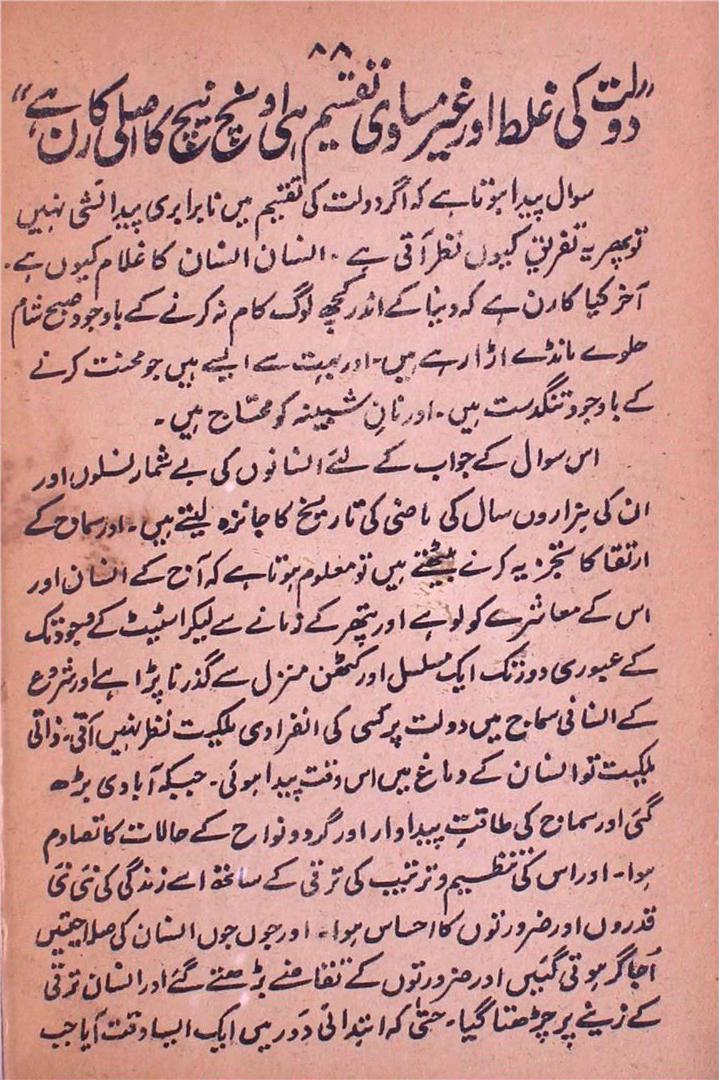 ۸۸
"دولت کی غلط اور غیر مساوی تقسیم ہی اونچ نیچ کا اصلی کارن ہے"
سوال پیدا ہوتا ہے کہ اگر دولت کی تقسیم میں نابرابری پیدائشی نہیں
تو پھر یہ تفریق کیوں نظر آتی ہے ۔ انسان انسان کا غلام کیوں ہے ۔
آخر کیا کارن ہے کہ دنیا کے اندر کچھ لوگ کام نہ کرنے کے باوجود صبح شام
حلوے مانڈے اڑا رہے ہیں ۔ اور بہت سے ایسے ہیں جو محنت کرنے
کے باوجود تنگدست ہیں ۔ اور نانِ شبینہ کو محتاج ہیں ۔
اس سوال کے جواب کے لئے انسانوں کی بے شمار نسلوں اور
ان کی ہزاروں سال کی ماضی کی تاریخ کا جائزہ لیتے ہیں ۔ اور سماج کے
ارتقا کا تجزیہ کرنے بیٹھتے ہیں تو معلوم ہوتا ہے کہ آج کے انسان اور
اس کے معاشرے کو لوہے اور پتھر کے زمانے سے لیکر اسٹیٹ کے وجود تک
کے عبوری دور تک ایک مسلسل اور کٹھن منزل سے گذرنا پڑا ہے اور شروع
کے انسانی سماج میں دولت پر کسی کی انفرادی ملکیت نظر نہیں آتی ۔ ذاتی
ملکیت تو انسان کے دماغ میں اس وقت پیدا ہوئی ۔ جبکہ آبادی بڑھ
گئی اور سماج کی طاقتِ پیداوار اور گردو نواح کے حالات کا تصادم
ہوا ۔ اور اس کی تنظیم و ترتیب کی ترقی کے ساتھ اسے زندگی کی نئی نئی
قدروں اور ضرورتوں کا احساس ہوا ۔ اور جوں جوں انسان کی صلاحیتیں
اُجاگر ہوتی گئیں اور ضرورتوں کے تقاضے بڑھتے گئے اور انسان ترقی
کے زینے پر چڑھتا گیا ۔ حتیٰ کہ ابتدائی دَور میں ایک ایسا وقت آیا جب